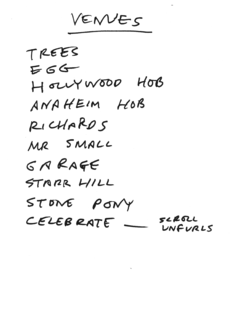 VENUES
TREES
EGG
HOLLYWOOD HOB
ANAHEIM HOB
RICHARDS
MR SMALL
GARAGE
STARR HILL
STONE PONY
CELEBRATE — SCROLL
UNFURLS